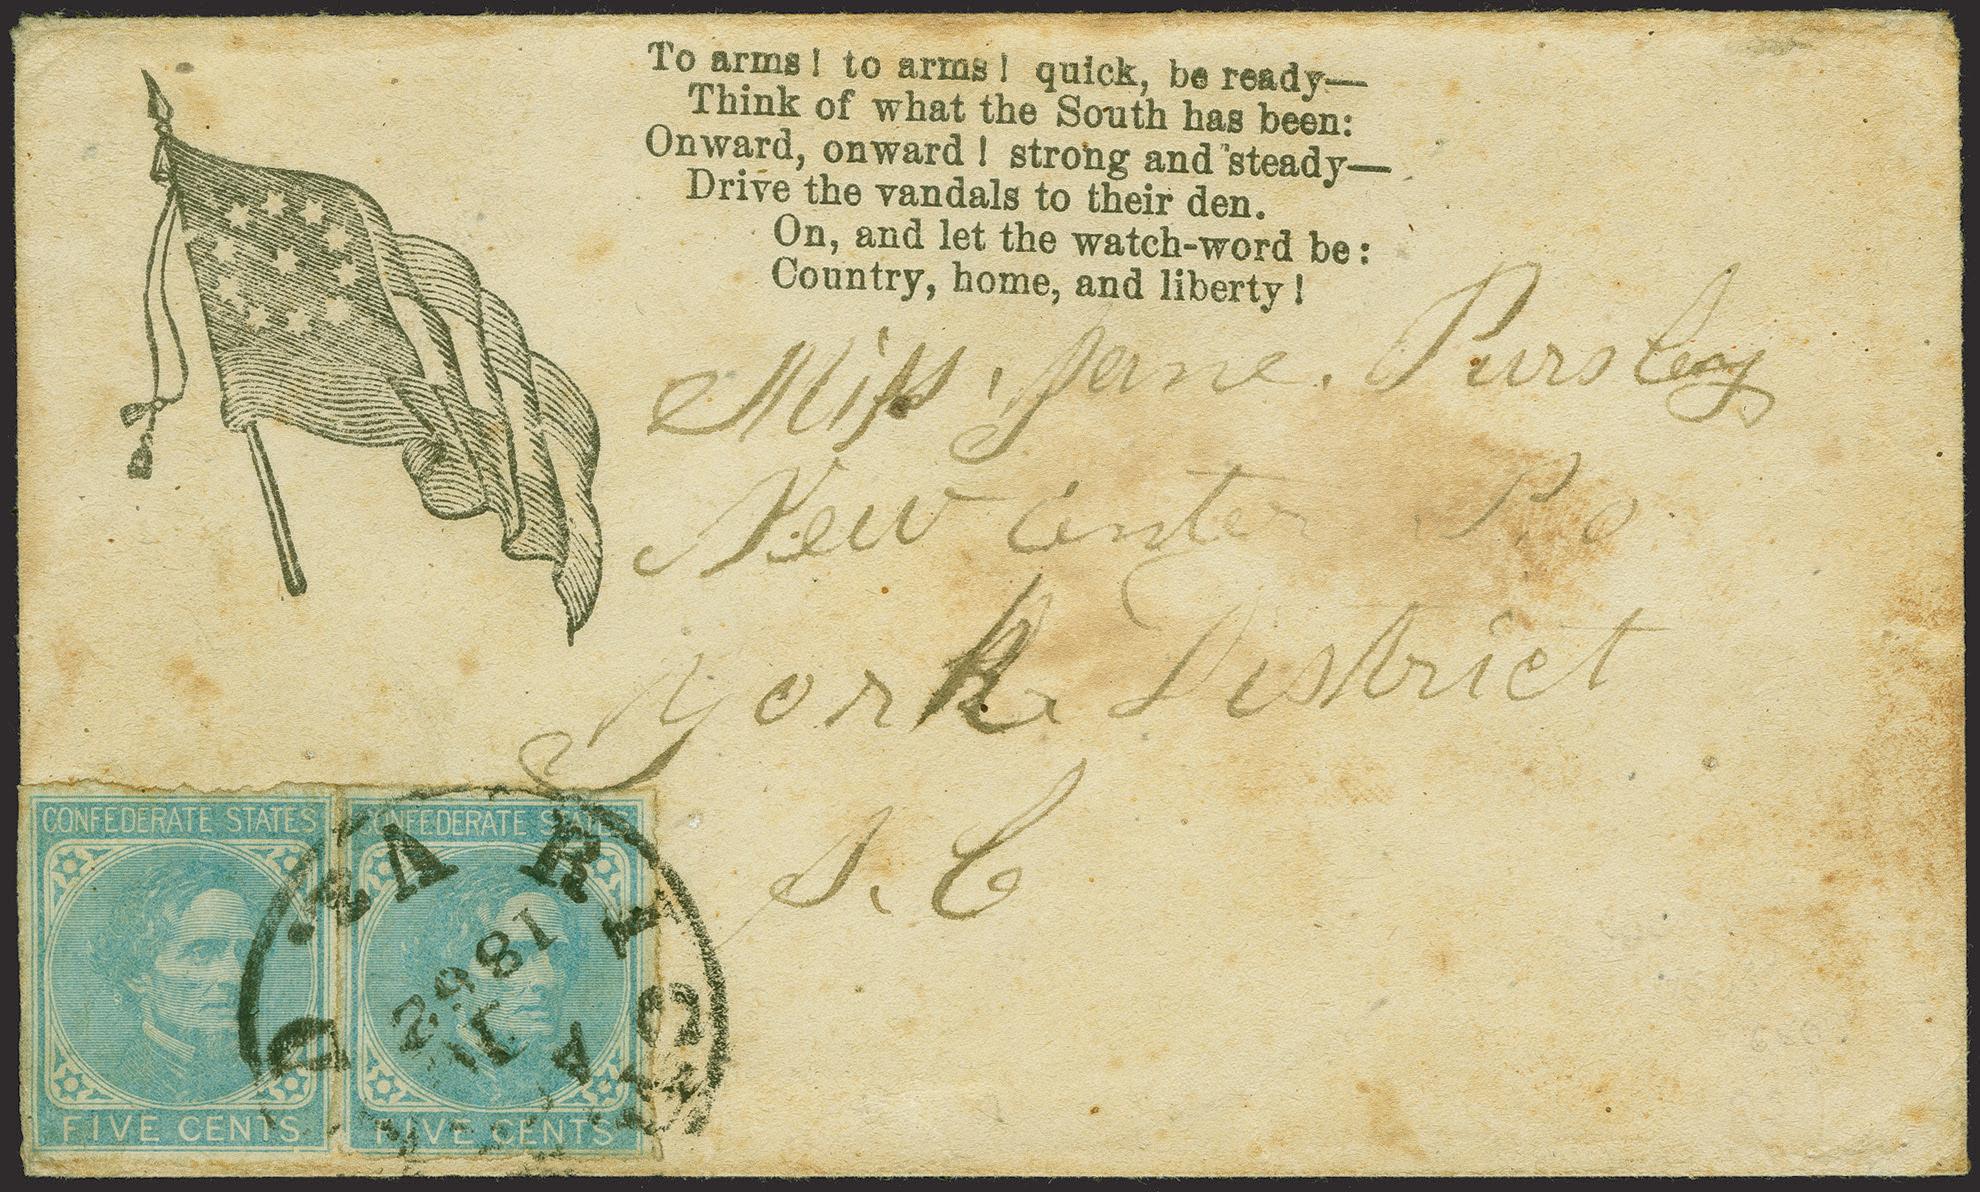 To arms! to arms! quick, be ready—
Think of what the South has been:
Onward, onward! strong and steady—
Drive the vandals to their den.
On, and let the watch-word be:
Country, home, and liberty!
Miss. Jane. Pursley
New Center P.o
York District
S. C
CONFEDERATE STATES
FIVE CENTS
CONFEDERATE STATES
FIVE CENTS
1862